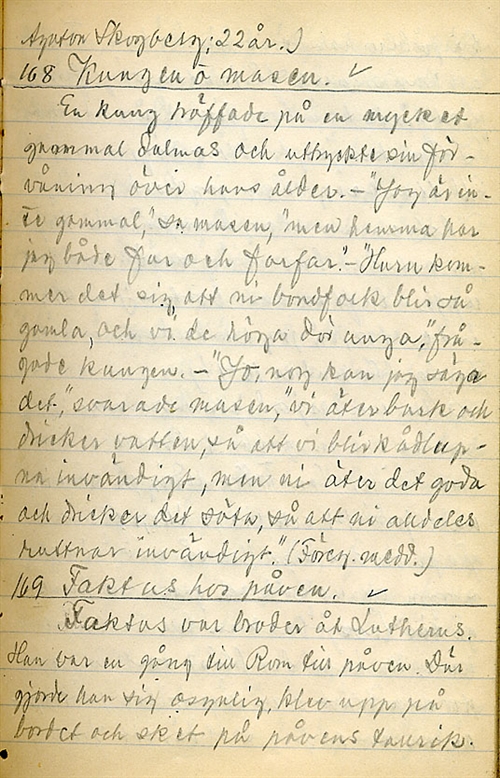 Skogberg; 22 år.)
168 Kungen o masen. ✓
En kung träffade på en mycket
gammal dalmas och uttryckte sin för-
våning över hans ålder. – "Jag är in-
te gammal," sa masen, "men hemma har
jag både far och farfar." – "Huru kom-
mer det sig att ni bondfolk blir så
gamla, och vi de höga dör unga," frå-
gade kungen. – "Jo, nog kan jag säga
det," svarade masen, "vi äter bark och
dricker vatten, så att vi blir
invändigt, men ni äter det goda
och dricker det söta, så att ni alldeles
ruttnar invändigt." (Föreg. medd.)
169 Faktus hos påven. ✓
Faktus var broder åt Lutherus.
Han var en gång till Rom till påven. Där
gjorde han sig osynlig, klev upp på
bordet och sket på påvens taurik.